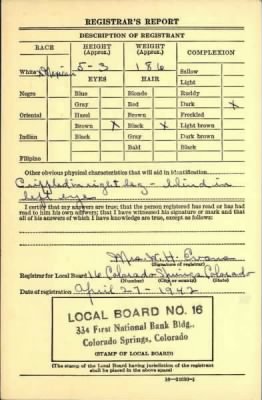 REGISTRAR'S REPORT
DESCRIPTION OF REGISTRANT
RACE HEIGHT (Approx.) WEIGHT (Approx.) COMPLEXION
White x Mexican 5-3 186 Sallow
EYES HAIR Light
Negro Blue Blonde Ruddy
Gray Red Dark x
Oriental Hazel Brown Freckled
Brown x Black x Light brown
Indian Black Gray Dark brown
Bald Black
Filipino
Other obvious physical characteristics that will aid in identification
Crippled in right leg - blind in
left eye
I certify that my answers are true; that the person registered has read or has had
read to him his own answers; that I have witnessed his signature or mark and that
all of his answers of which I have knowledge are true, except as follows:
Mrs. W. H. Evans
(Signature of registrar)
Registrar for Local Board 16 Colorado Springs, Colorado
(Number) (City or county) (State)
Date of registration April 27-1942
LOCAL BOARD NO. 16
334 First National Bank Bldg.,
Colorado Springs, Colorado
(STAMP OF LOCAL BOARD)
(The stamp of the Local Board having jurisdiction of the registrant
shall be placed in the above space)